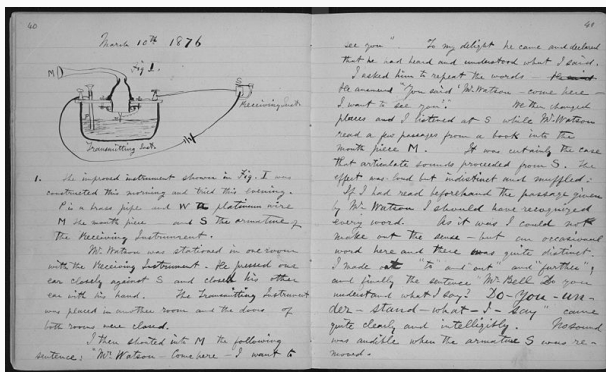 40
March 10th 1876
Fig 1.
M
S
P
W
Receiving Inst.
Transmitting Inst.
1. The improved instrument shown in Fig. I was
constructed this morning and tried this evening.
P is a brass pipe and W the platinum wire
M the mouth piece and S the armature of
the Receiving Instrument.
Mr. Watson was stationed in one room
with the Receiving Instrument. He pressed one
ear closely against S and closed his other
ear with his hand. The Transmitting Instrument
was placed in another room and the doors of
both rooms were closed.
I then shouted into M the following
sentence: "Mr. Watson - Come here - I want to
41
see you". To my delight he came and declared
that he had heard and understood what I said.
I asked him to repeat the words -
He answered "You said 'Mr. Watson - come here -
I want to see you'." We then changed
places and I listened at S while Mr. Watson
read a few passages from a book into the
mouth piece M. It was certainly the case
that articulate sounds proceeded from S. The
effect was loud but indistinct and muffled.
If I had read beforehand the passage given
by Mr. Watson I should have recognized
every word. As it was I could not
make out the sense - but an occasional
word here and there was quite distinct.
I made out "to" and "out" and "further";
and finally the sentence "Mr. Bell Do you
understand what I say? Do-you-un-
der-stand-what-I-say" came
quite clearly and intelligibly. No sound
was audible when the armature S was re-
moved.